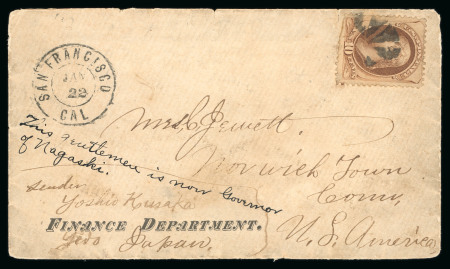 SAN FRANCISCO
JAN
22
CAL
Mrs C Jewett
Norwich Town
Conn,
U.S. America
This gentleman is now Governor
of Nagaski.
Sender
Yoshio Kusaka
FINANCE DEPARTMENT.
Yedo Japan,